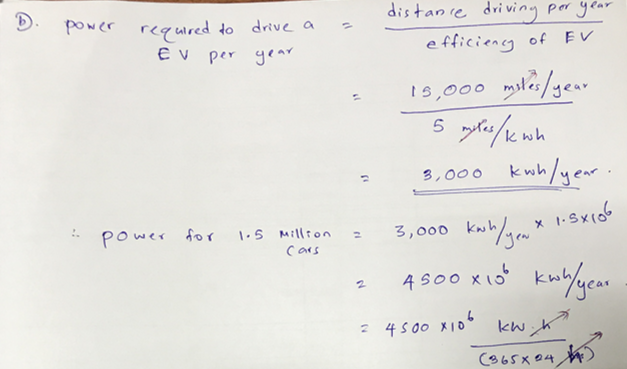 b). power required to drive a EV per year = distance driving per year / efficiency of EV
= 15,000 miles/year / 5 miles/kwh
= 3,000 kwh/year.
∴ power for 1.5 Million Cars = 3,000 kwh/year × 1.5×10⁶
= 4500 ×10⁶ kwh/year.
= 4500 ×10⁶ kw.h / (365×24 h)